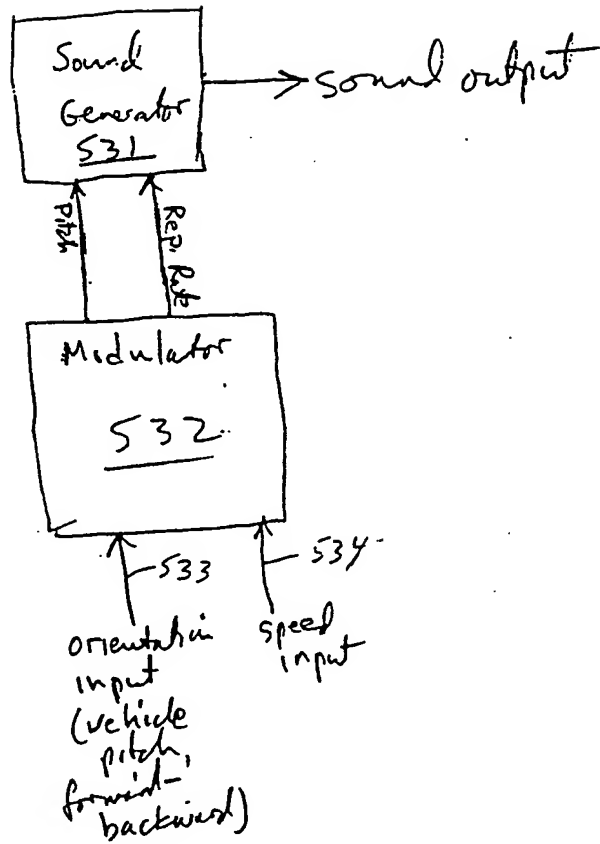 Sound
Generator
531
sound output
Pitch
Rep. Rate
Modulator
532
533
534
orientation
input
(vehicle
pitch,
forward-
backward)
speed
input